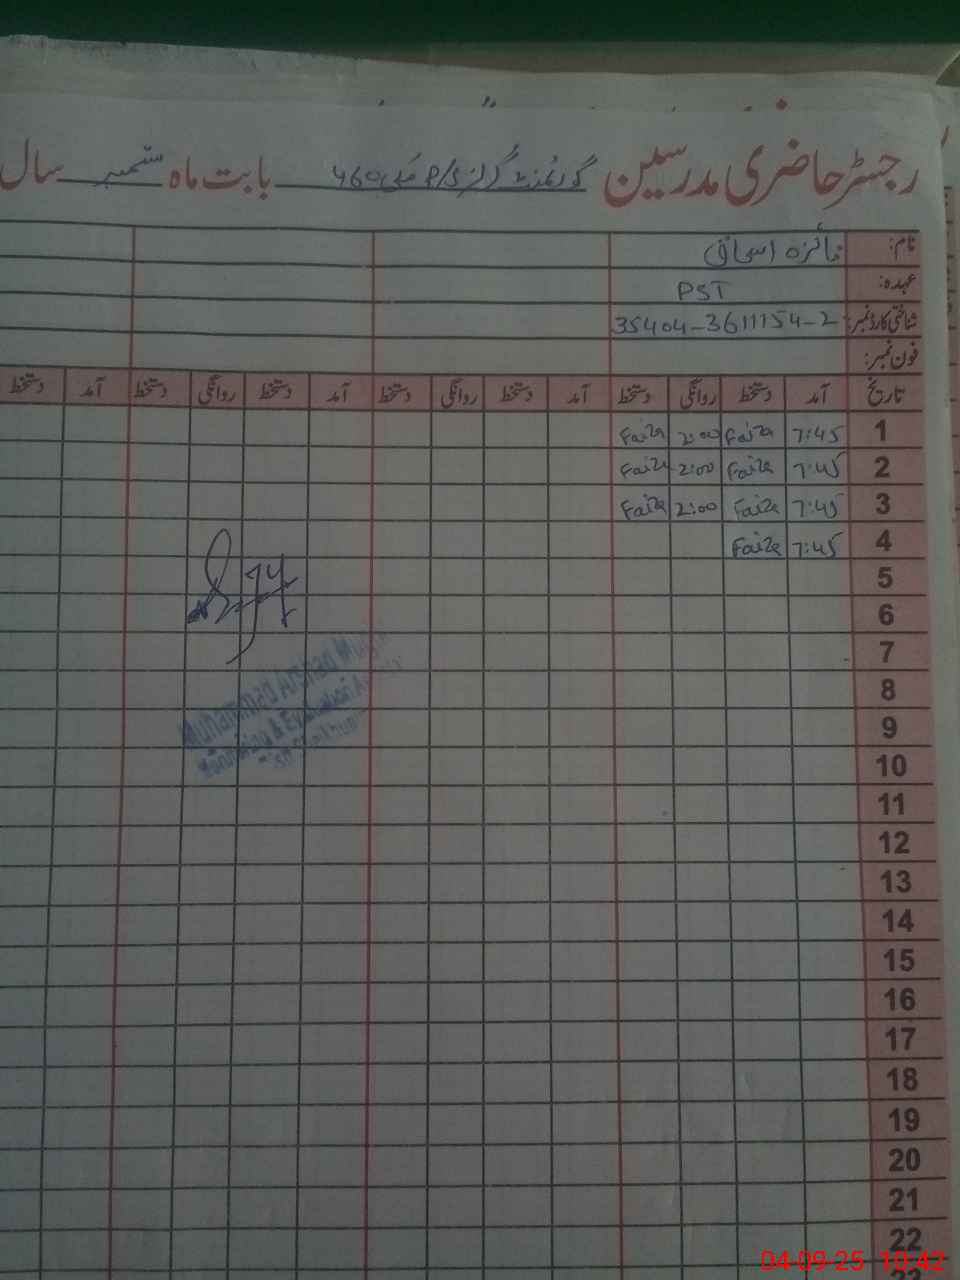 رجسٹر حاضری مدرسین گورنمنٹ گرلز P/S بابت ماہ ستمبر سال
نام: فائزہ اسحاق
عہدہ: PST
شناختی کارڈ نمبر: 35404-3611154-2
فون نمبر:
تاریخ آمد دستخط روانگی دستخط آمد دستخط روانگی دستخط آمد دستخط روانگی دستخط آمد دستخط
1 7:45 Faiza 2:00 Faiza
2 7:45 Faiza 2:00 Faiza
3 7:45 Faiza 2:00 Faiza
4 7:45 Faiza
5
6
7
8
9
10
11
12
13
14
15
16
17
18
19
20
21
22
Muhammad Arshad
Monitoring & Evaluation
04-09-25 10:42